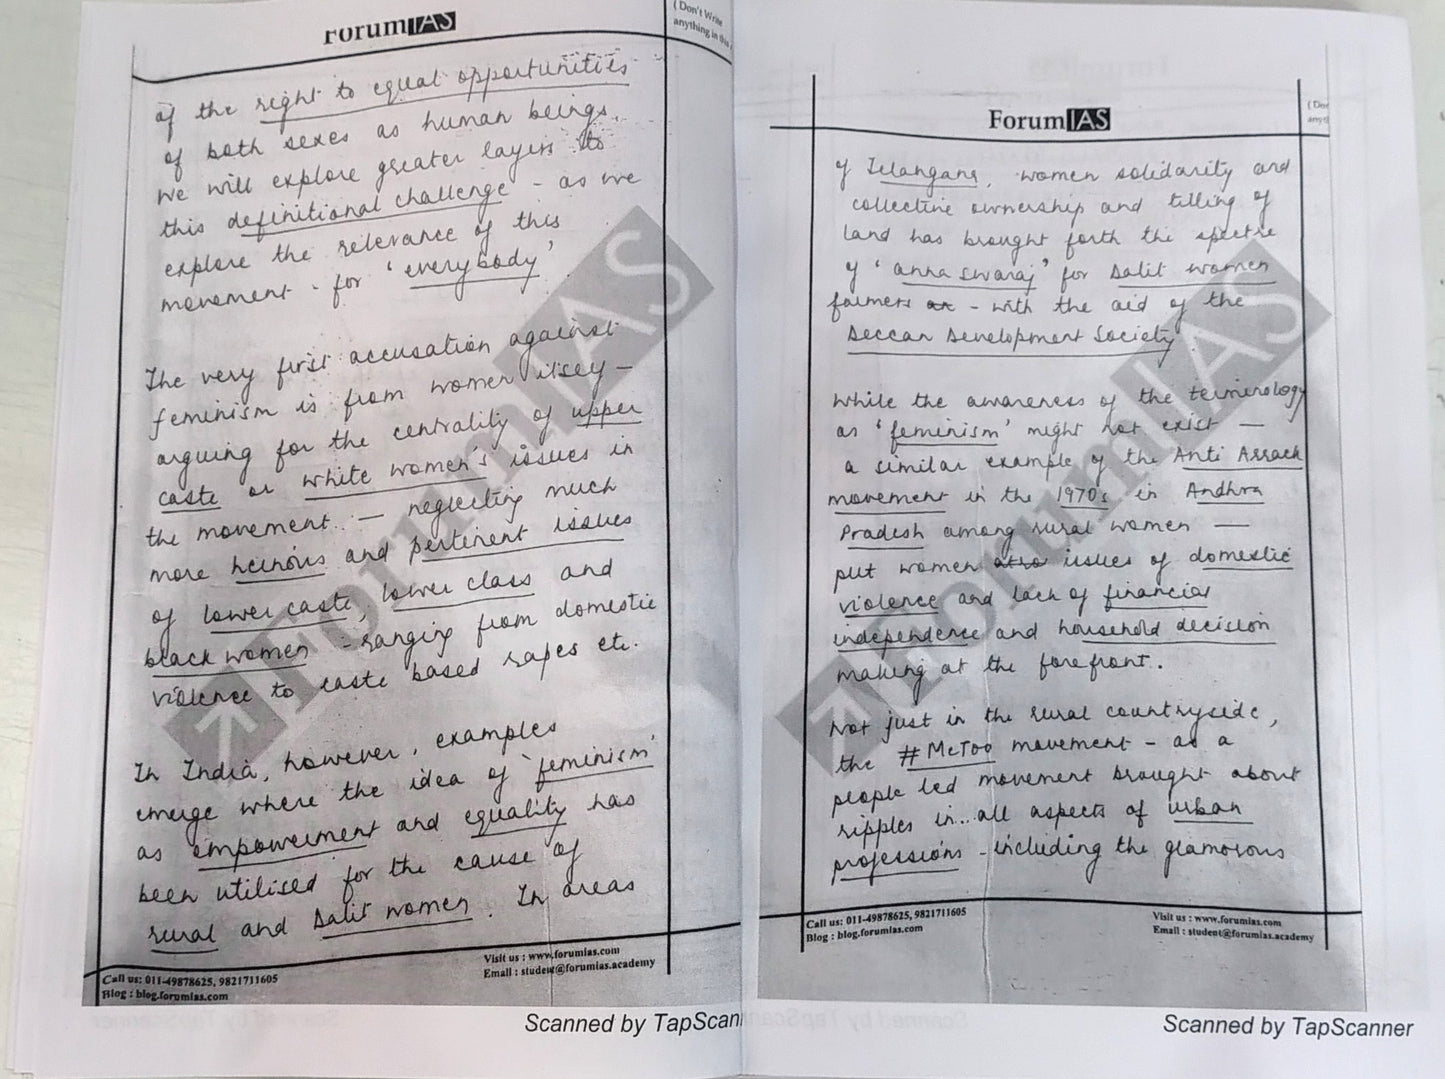 ForumIAS
( Don't Write
anything in this
of the right to equal opportunities
of both sexes as human beings.
We will explore greater layers to
this definitional challenge - as we
explore the relevance of this
movement - for 'everybody'
The very first accusation against
feminism is from women itself —
arguing for the centrality of upper
caste or white women's issues in
the movement — neglecting much
more heinous and pertinent issues
of lower caste, lower class and
black women - ranging from domestic
violence to caste based rapes etc.
In India, however, examples
emerge where the idea of 'feminism'
as empowerment and equality has
been utilised for the cause of
rural and Dalit women. In areas
Call us: 011-49878625, 9821711605
Blog : blog.forumias.com
Visit us : www.forumias.com
Email : student@forumias.academy
Scanned by TapScan
ForumIAS
of Telangana, women solidarity and
collective ownership and tilling of
land has brought forth the spectre
of 'anna swaraj' for Dalit women
farmers - with the aid of the
Deccan Development Society.
While the awareness of the terminology
as 'feminism' might not exist —
a similar example of the Anti Arrack
movement in the 1970s in Andhra
Pradesh among rural women —
put women issues of domestic
violence and lack of financial
independence and household decision
making at the forefront.
Not just in the rural countryside,
the #MeToo movement - as a
people led movement brought about
ripples in all aspects of urban
professions - including the glamorous
Call us: 011-49878625, 9821711605
Blog : blog.forumias.com
Visit us : www.forumias.com
Email : student@forumias.academy
Scanned by TapScanner